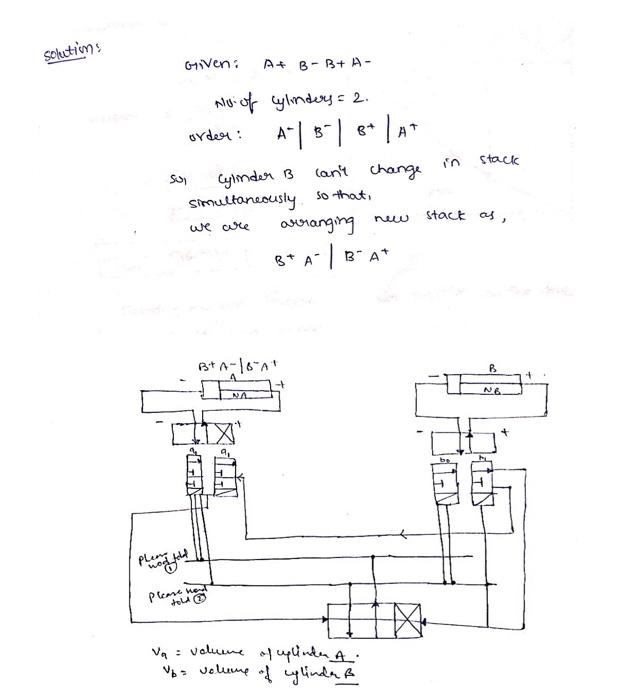 solution:
Given: A+ B- B+ A-
No. of cylinders = 2.
order: A- | B- | B+ | A+
So, cylinder B can't change in stack
simultaneously so that,
we are arranging new stack as,
B+ A- | B- A+
B+ A- | B- A+
- A +
NA
- B +
NB
- +
- +
a0 a1
b0 b1
①
②
Va = volume of cylinder A.
Vb = volume of cylinder B